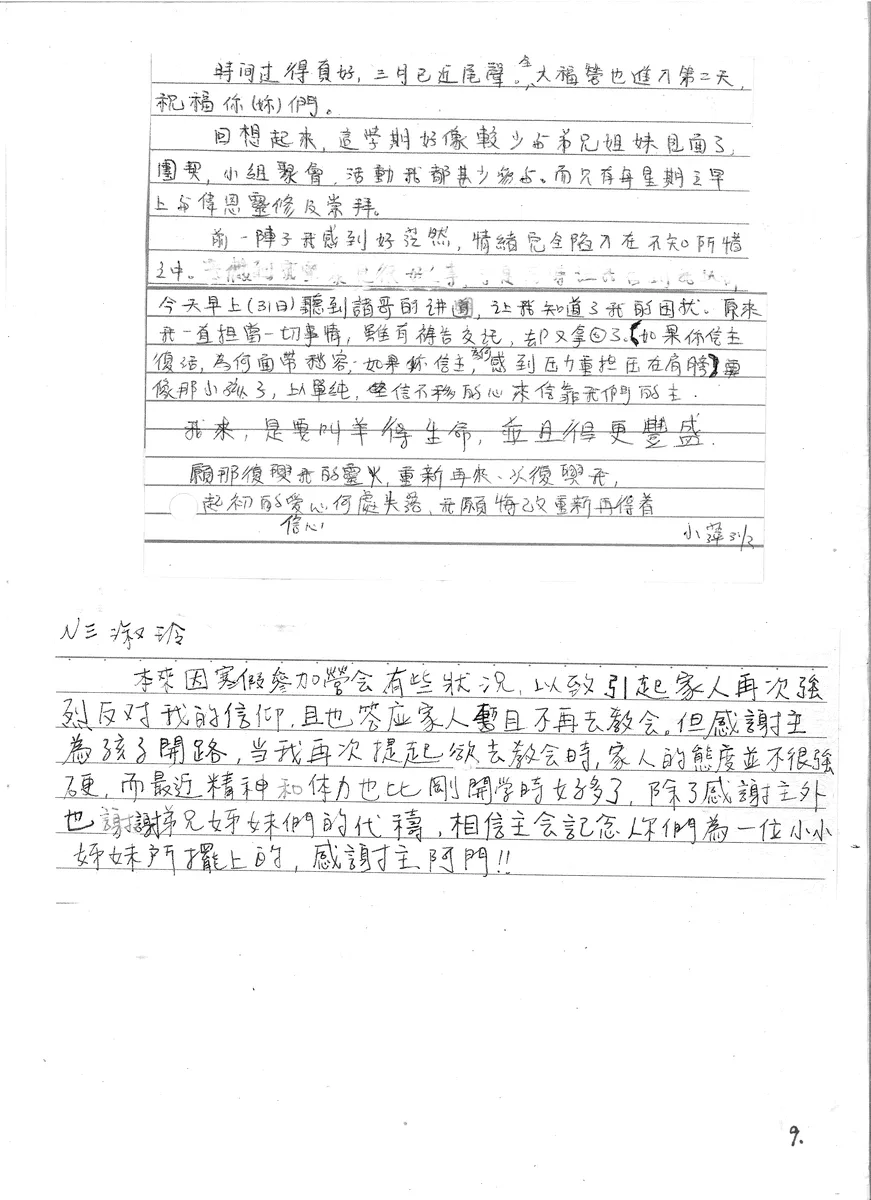 時间过得真好，三月已近尾聲。全大福營也進入第二天，
祝福你(妳)們。
回想起來，這学期好像較少与弟兄姐妹見面了，
團契，小組聚會，活動我都甚少參与。而只有每星期主早
上与偉恩靈修及崇拜。
前一陣子我感到好茫然，情緒完全陷入在不知所措
之中。
今天早上(31日)聽到諸哥的讲，让我知道了我的困扰。原來
我一直担當一切事情，雖有禱告交託，却又拿回了。【如果你信主
復活，為何面帶愁容，如果你信主，為何感到压力重担压在肩膀】要
像那小孩子，以單純，坚信不移的心來信靠我們的主．
我來，是要叫羊得生命，並且得更豐盛．
願那復興我的靈火，重新再來、以復興我，
起初的愛心何處失落、我願悔改重新再得着
信心
小萍 31/3
N三 淑玲
本來因寒假參加營会有些狀況，以致引起家人再次強
烈反对我的信仰，且也答应家人暫且不再去教会。但感謝主
為孩子開路，当我再次提起欲去教会時，家人的態度並不很強
硬，而最近精神和体力也比剛開学時好多了，除了感謝主外
也謝謝弟兄姊妹們的代禱，相信主会記念你們為一位小小
姊妹所擺上的，感謝主 阿門!!
9.